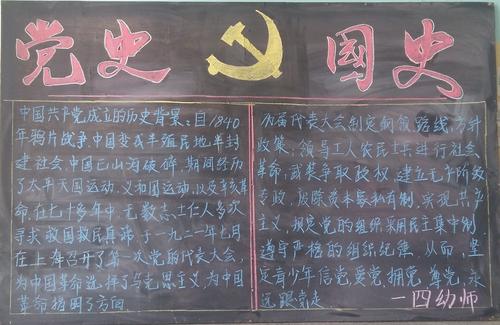 党史 国史
中国共产党成立的历史背景：自1840
年鸦片战争,中国变成半殖民地半封
建社会,中国已山河破碎,期间经历
了太平天国运动、义和团运动,以及辛亥革
命,在七十多年中,无数志士仁人多次
寻求救国救民真谛,于一九二一年七月
在上海召开了第一次党的代表大会,
为中国革命选择了马克思主义,为中国
革命指明了方向
历届代表大会制定纲领路线、方针
政策、领导工人农民士兵进行社会
革命,武装争取政权,建立无产阶级
专政,废除资本家私有制,实现共产
主义,规定党的组织采用民主集中制,
遵守严格的组织纪律,从而,坚
定青少年信党、爱党、拥党、尊党、永
远跟党走
一四幼师